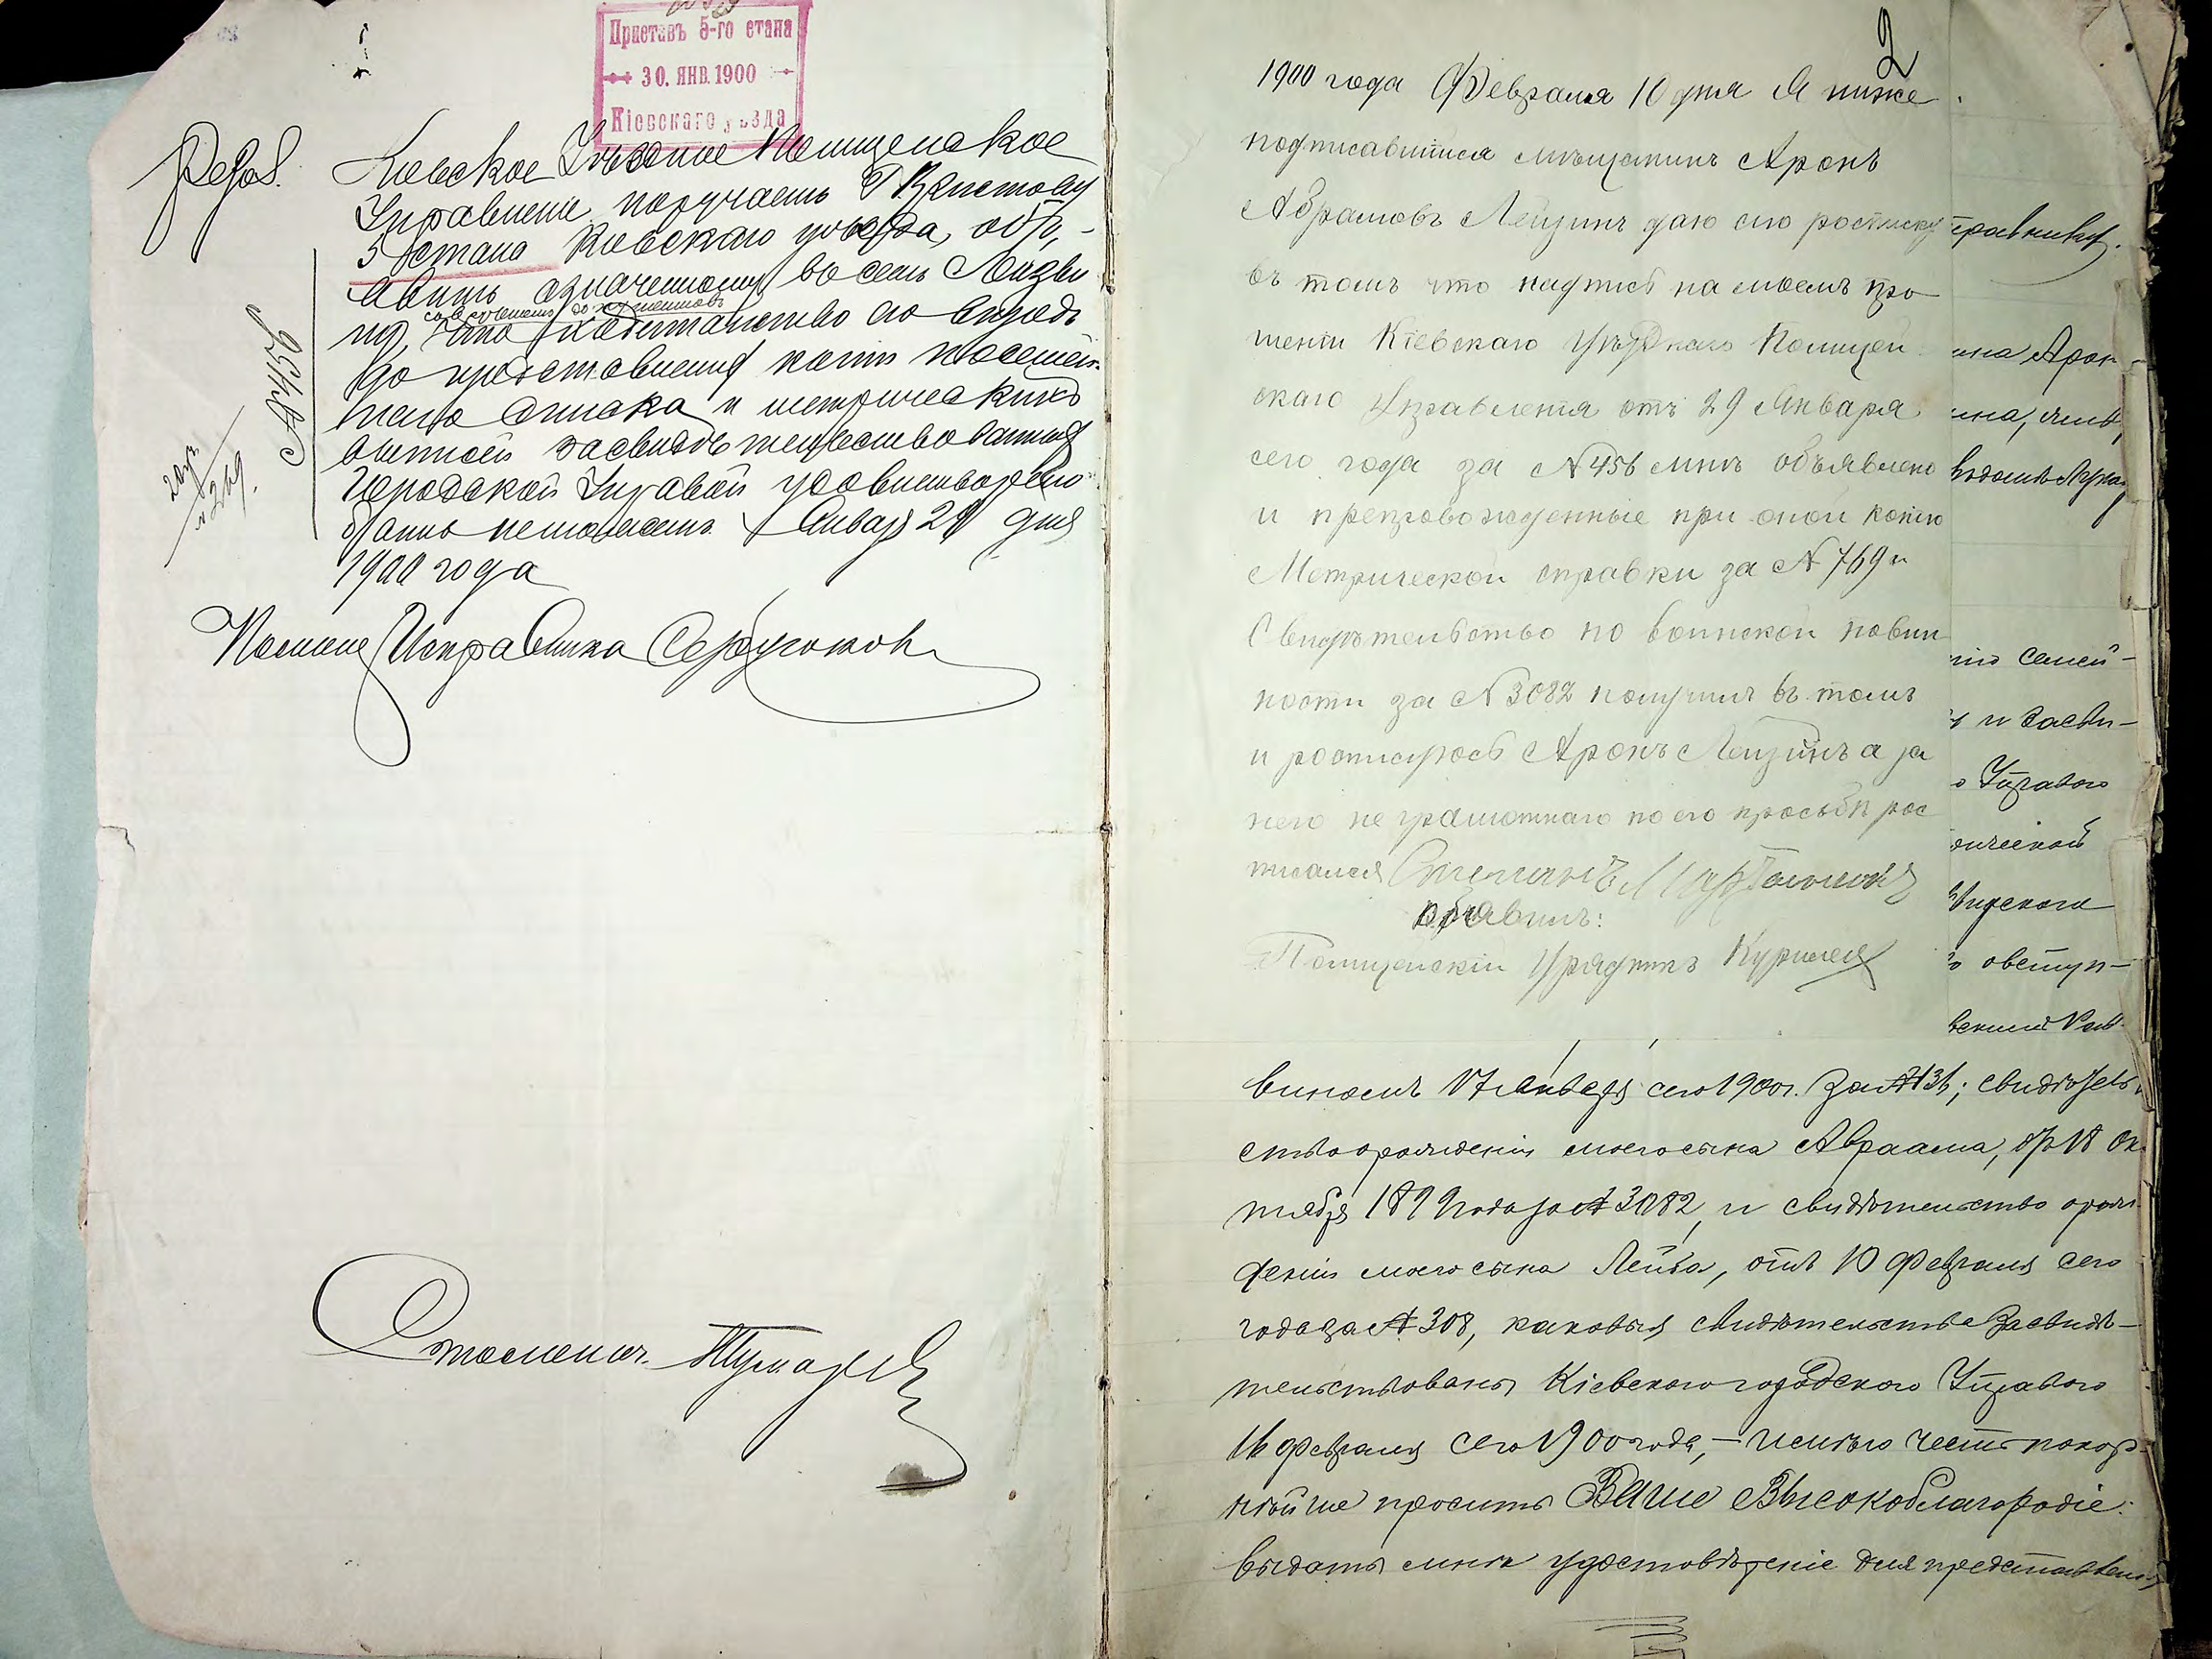 Приставъ 5-го стана
30. ЯНВ. 1900
Кіевскаго уѣзда
Кіевское Уѣздное Полицейское
Управленіе поручаетъ Г Приставу
5 стана Кіевскаго уѣзда, объ-
явить означенному въ семъ Лейзи
ну, что ходатайство его впредь
съ возвратомъ документовъ
до представленія копіи посемей-
наго списка и метрическихъ
выписей засвидѣтельствованныхъ
Городской Управой удовлетворено
быть неможетъ. Января 29 дня
1900 года
№ 456
№ 269.
Помощ Исправника
2
1900 года Февраля 10 дня Я ниже
подписавшійся мѣщанинъ Аронъ
Абрамовъ Лейзинъ даю сію росписку
въ томъ что надпись на моемъ про
шеніи Кіевскаго Уѣзднаго Полицей
скаго Управленія отъ 29 Января
сего года за №456 мнѣ объявлено
и препровожденные при оной копію
Метрической справки за № 769 и
Свидѣтельство по воинской повин
ности за №3082 получилъ въ томъ
и росписуюсь Аронъ Лейзинъ а за
него не грамотнаго по его просьбѣ рос
писался Степанъ
объявилъ:
Полицейскій Урядникъ
ина Арон
ина, жив,
семей-
и засви-
Управою
рической
вступ-
виномъ 17 Января сего 1900 г. за № 136; свидѣтель
ство о рожденіи моего сына Авраама, отъ 18 Ок
тября 1899 года за № 3082, и свидѣтельство о рож
деніи моего сына Лейба, отъ 10 Февраля сего
года за № 308, каковыя свидѣтельства засвидѣ-
тельствованы Кіевскою городскою Управою
16 февраля сего 1900 года, – имѣю честь покор-
нѣйше просить Ваше Высокоблагородіе
выдать мнѣ удостовѣреніе для представленія